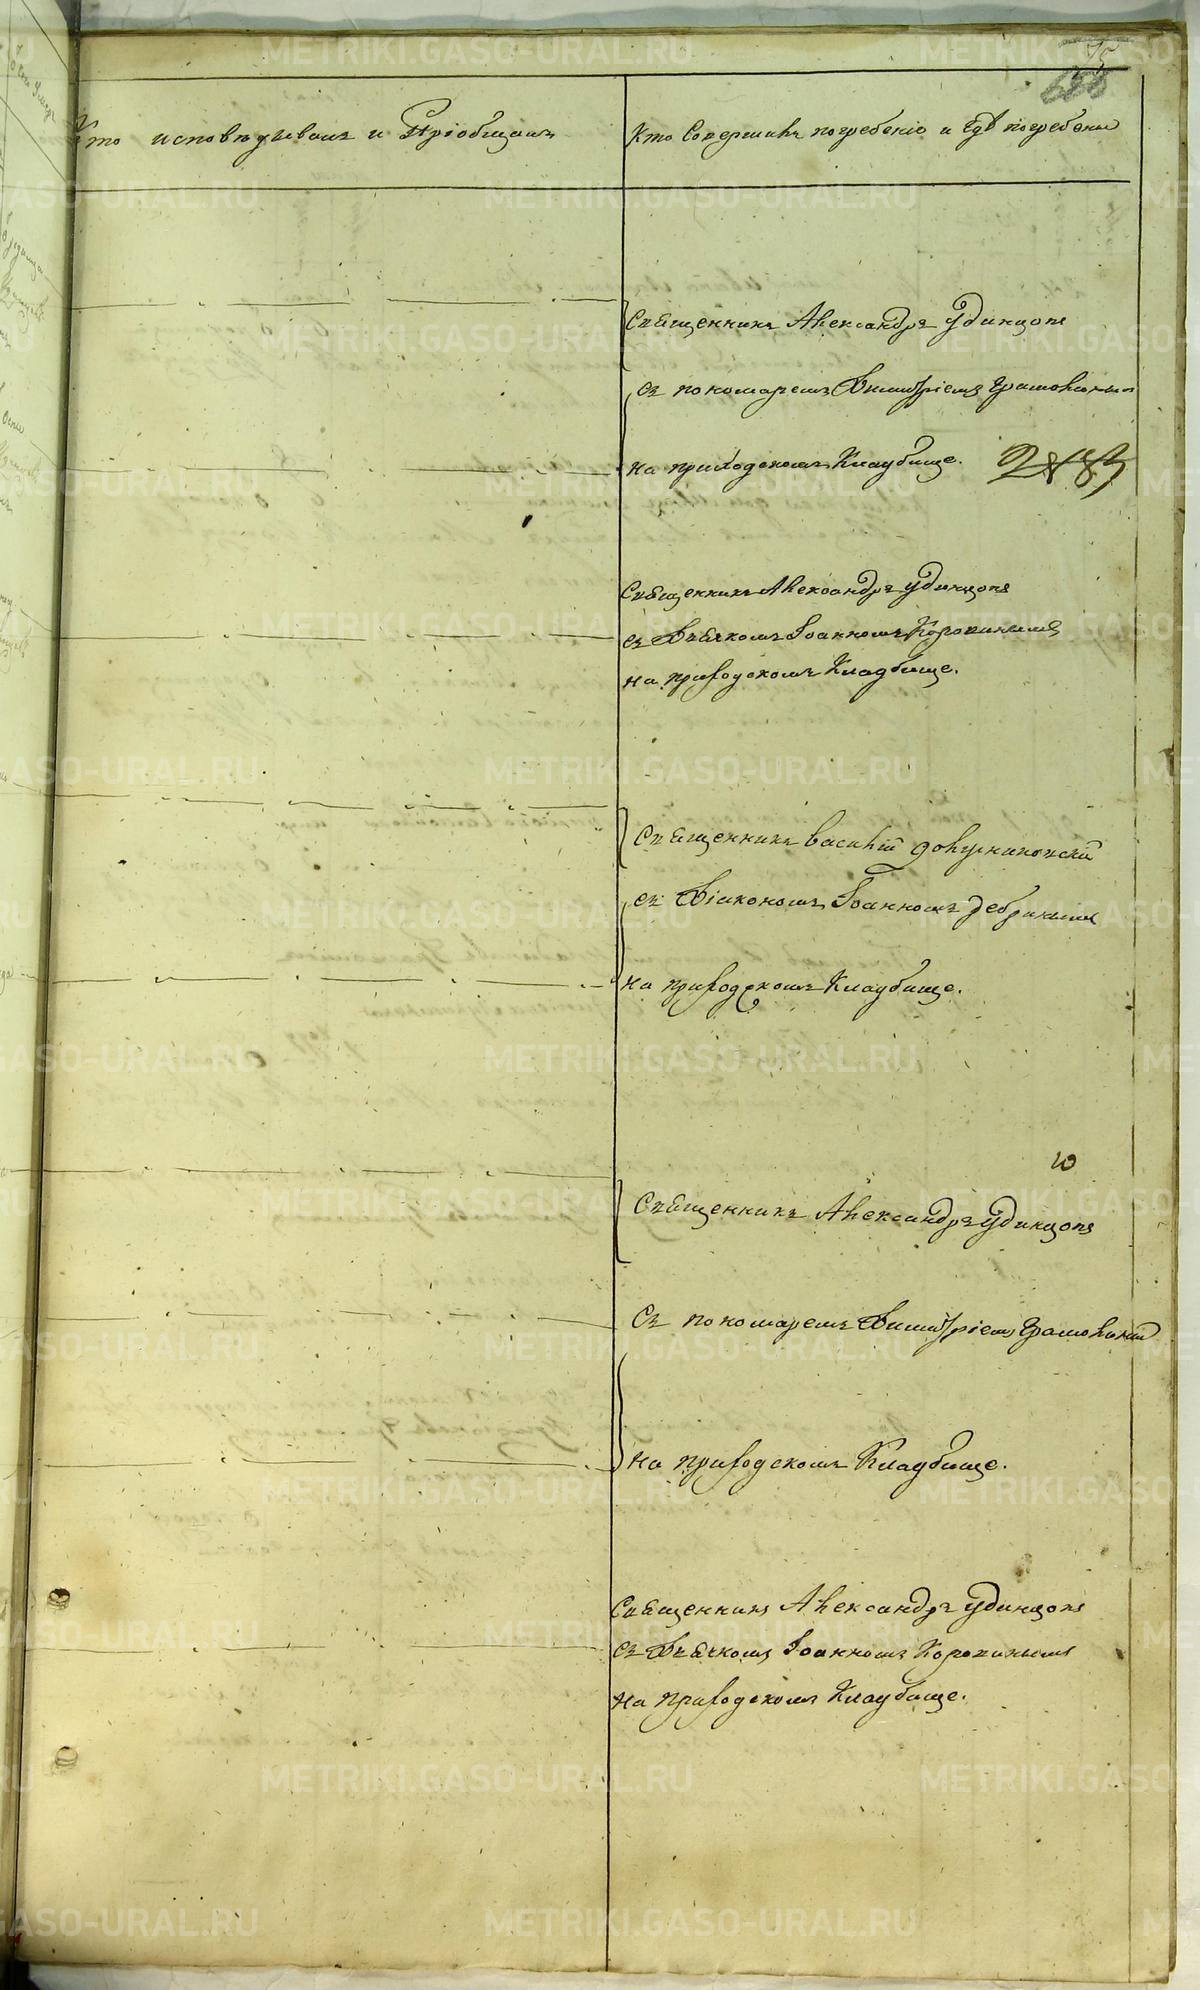 75
Кто исповѣдывалъ и Пріобщалъ
Кто Совершилъ погребеніе и Гдѣ погребены
Священникъ Александръ Удинцовъ
съ пономаремъ Димитріемъ
на приходскомъ Кладбище.
Священникъ Александръ Удинцовъ
съ Дьячкомъ Іоанномъ Коровинымъ
на приходскомъ Кладбище.
Священникъ Василій
съ Діакономъ Іоанномъ
на приходскомъ Кладбище.
10
Священникъ Александръ Удинцовъ
Съ пономаремъ Димитріемъ
на приходскомъ Кладбище.
Священникъ Александръ Удинцовъ
съ Дьячкомъ Іоанномъ Коровинымъ
на приходскомъ Кладбище.
METRIKI.GASO-URAL.RU